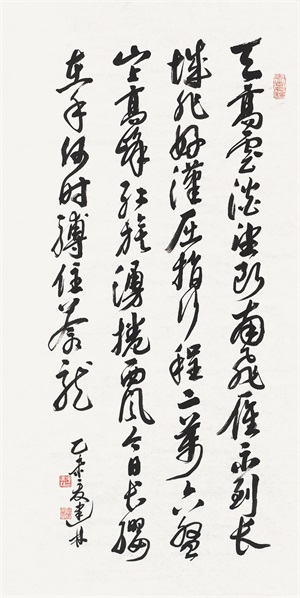 天高雲淡望断南飛雁不到长
城非好漢屈指行程二萬六盤
山上高峰红旗漫捲西风今日长缨
在手何时縛住蒼龙
乙未夏建林